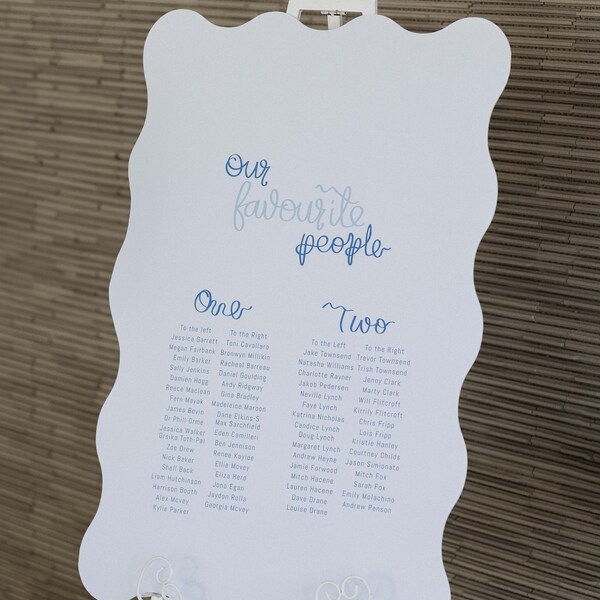 Our
favourite
people
One
To the left
Jessica Garrett
Megan Fairbank
Emily Barker
Sally Jenkins
Damien Hogg
Reece Maclean
Fenn Mayes
James Bevin
Dr Phil Orme
Jessica Walker
Orsika Toth-Pal
Zoe Drew
Nick Baker
Sheil Back
Liam Hutchinson
Harrison Booth
Alex Mcvey
Kylie Parker
To the Right
Tani Cavallaro
Bronwyn Millikin
Racheal Barreau
Daniel Goulding
Andy Ridgway
Gina Bradley
Madeleine Marcon
Dane Elkins-D
Max Sarchfield
Eden Camilleri
Ben Jennison
Renee Kaylee
Ellie Mcvey
Eliza Herd
Jono Egan
Jaydon Rolla
Georgia Mcvey
Two
To the Left
Jake Townsend
Natasha Williams
Charlotte Rayner
Jakob Pedersen
Neville Lynch
Faye Lynch
Katrina Nicholas
Candice Lynch
Doug Lynch
Margaret Lynch
Andrew Hayne
Jamie Forwood
Mitch Hacene
Lauren Hacene
Dave Drane
Louise Drane
To the Right
Trevor Townsend
Trish Townsend
Jenny Clark
Marty Clark
Will Flitcroft
Kirrily Flitcroft
Chris Fripp
Lois Fripp
Kristie Hanley
Courtney Childs
Jason Simionato
Mitch Fox
Sarah Fox
Emily Molachino
Andrew Penson